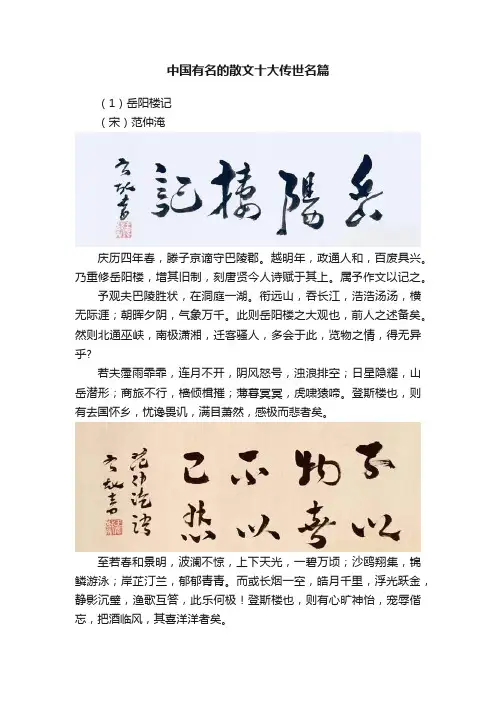 中国有名的散文十大传世名篇
（1）岳阳楼记
（宋）范仲淹
岳陽楼記
庆历四年春，滕子京谪守巴陵郡。越明年，政通人和，百废具兴。
乃重修岳阳楼，增其旧制，刻唐贤今人诗赋于其上。属予作文以记之。
予观夫巴陵胜状，在洞庭一湖。衔远山，吞长江，浩浩汤汤，横
无际涯；朝晖夕阴，气象万千。此则岳阳楼之大观也，前人之述备矣。
然则北通巫峡，南极潇湘，迁客骚人，多会于此，览物之情，得无异
乎?
若夫霪雨霏霏，连月不开，阴风怒号，浊浪排空；日星隐耀，山
岳潜形；商旅不行，樯倾楫摧；薄暮冥冥，虎啸猿啼。登斯楼也，则
有去国怀乡，忧谗畏讥，满目萧然，感极而悲者矣。
不以
物喜
不以
己悲
范仲淹語
至若春和景明，波澜不惊，上下天光，一碧万顷；沙鸥翔集，锦
鳞游泳；岸芷汀兰，郁郁青青。而或长烟一空，皓月千里，浮光跃金，
静影沉璧，渔歌互答，此乐何极！登斯楼也，则有心旷神怡，宠辱偕
忘，把酒临风，其喜洋洋者矣。